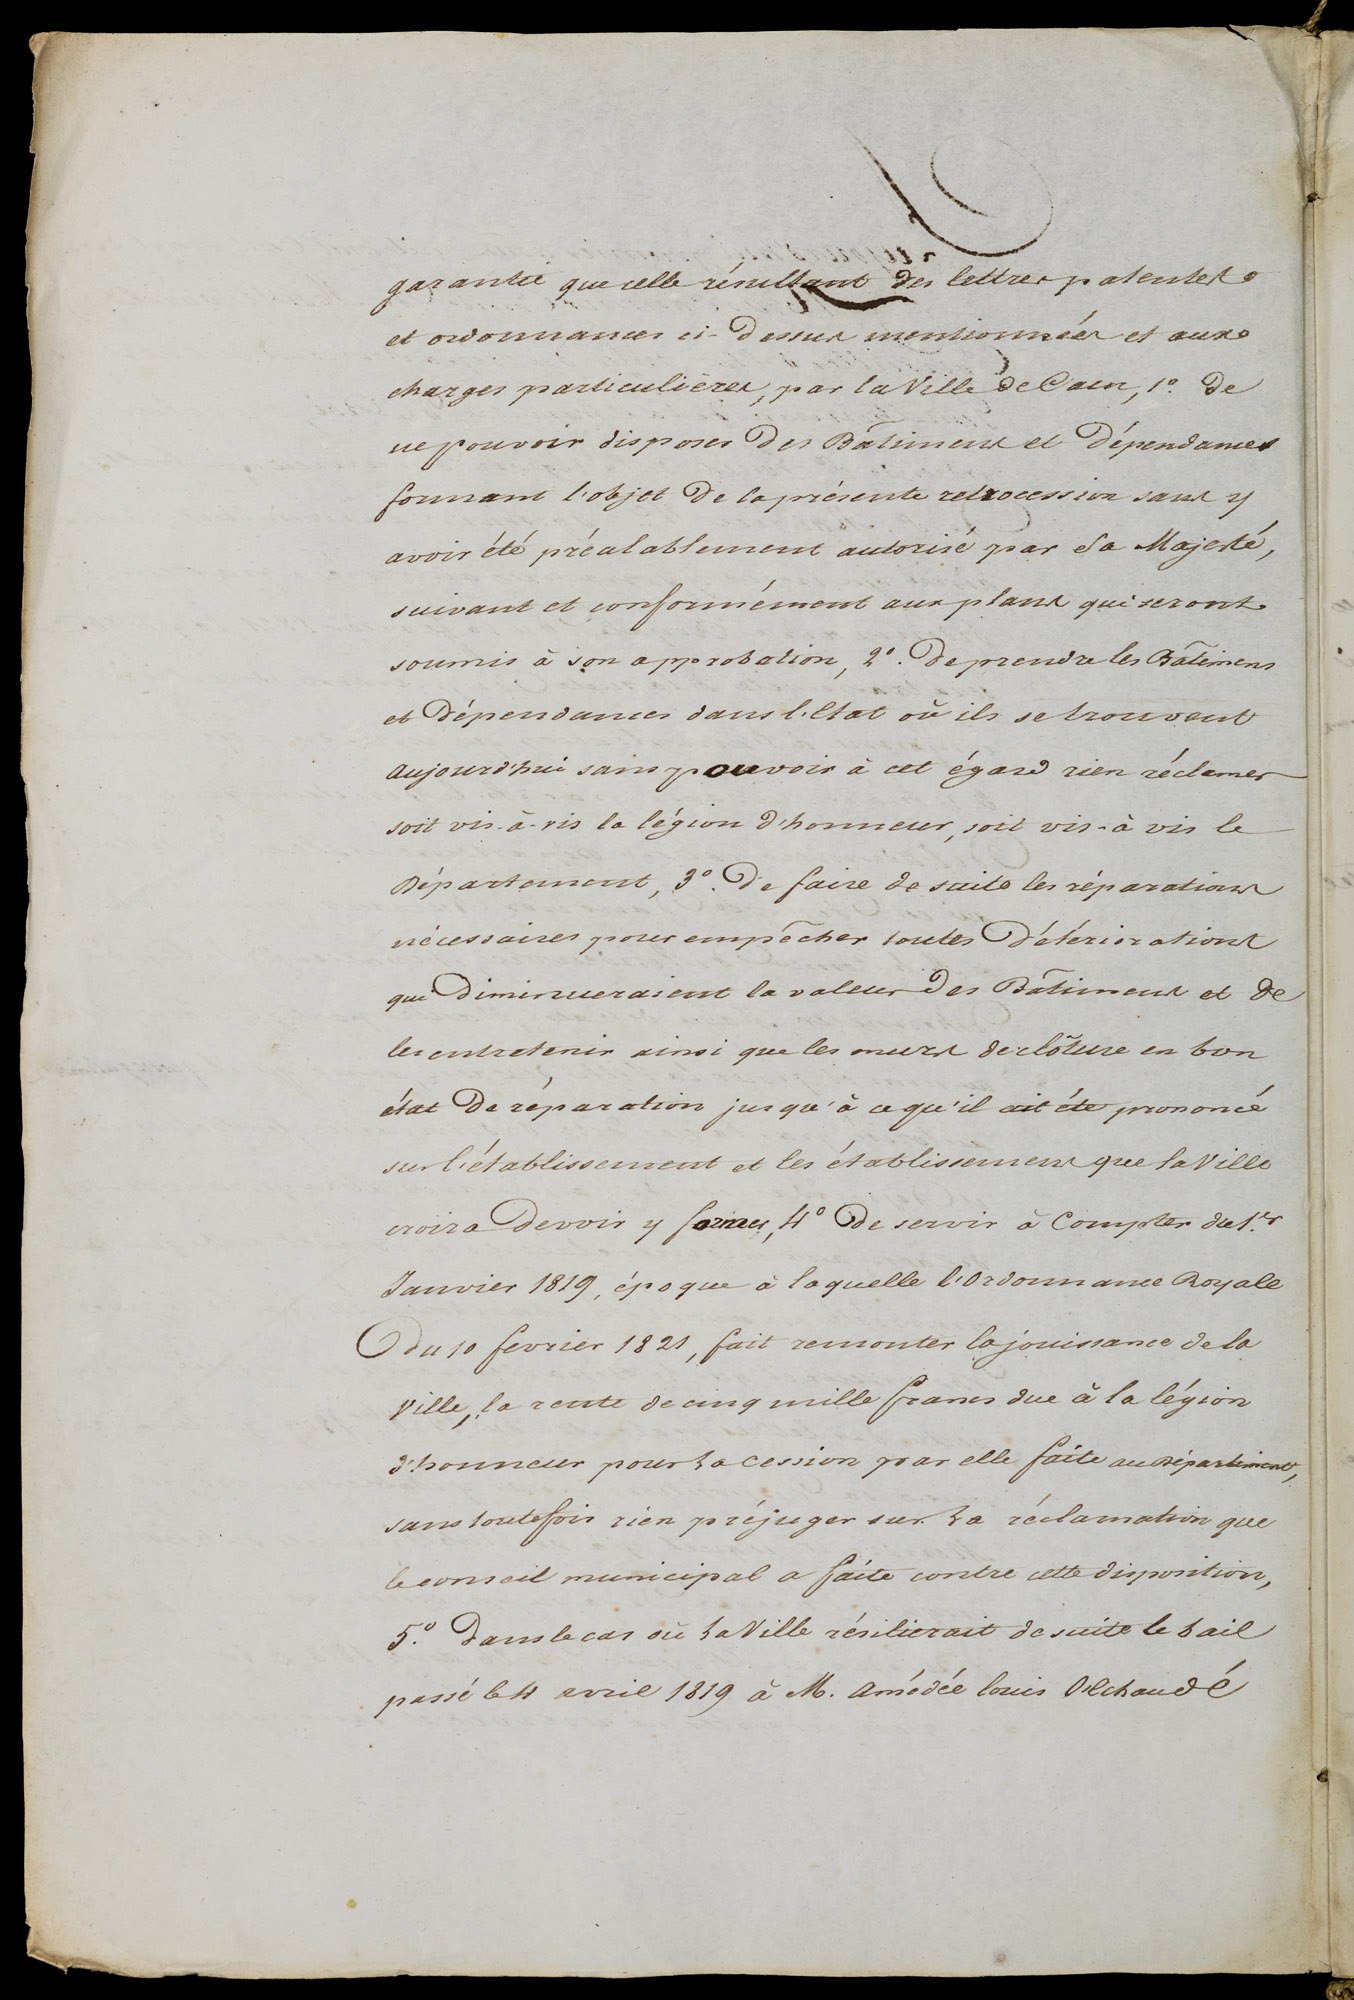 garantie que celle résultant des lettres patentes
et ordonnances ci-dessus mentionnées et aux
charges particulières, par la Ville de Caen, 1º. De
ne pouvoir disposer Des Bâtiments et Dépendances
formant l'objet De la présente retrocession sans y
avoir été préalablement autorisé par Sa Majesté,
suivant et conformément aux plans qui seront
soumis à son approbation, 2º. De prendre les Bâtimens
et Dépendances dans l'Etat où ils se trouvent
aujourd'hui sans pouvoir à cet égard rien réclamer
soit vis-à-vis la légion d'honneur, soit vis-à vis le
Département, 3º. De faire de suite les réparations
nécessaires pour empêcher toutes Détériorations
qui Diminueraient la valeur Des Bâtiments et de
les entretenir ainsi que les murs de clôture en bon
état De réparation jusqu'à ce qu'il ait été prononcé
sur l'établissement et les établissements que la Ville
croira Devoir y former, 4º De servir à Compter du 1.er
Janvier 1819, époque à laquelle l'Ordonnance Royale
Du 10 fevrier 1821, fait remonter la jouissance de la
Ville, la rente de cinq mille francs due à la légion
d'honneur pour la cession par elle faite au Département,
sans toutefois rien préjuger sur la réclamation que
le conseil municipal a faite contre cette disposition,
5º. Dans le cas où la Ville résilierait de suite le bail
passé le 4 avril 1819 à M. Amédée Louis